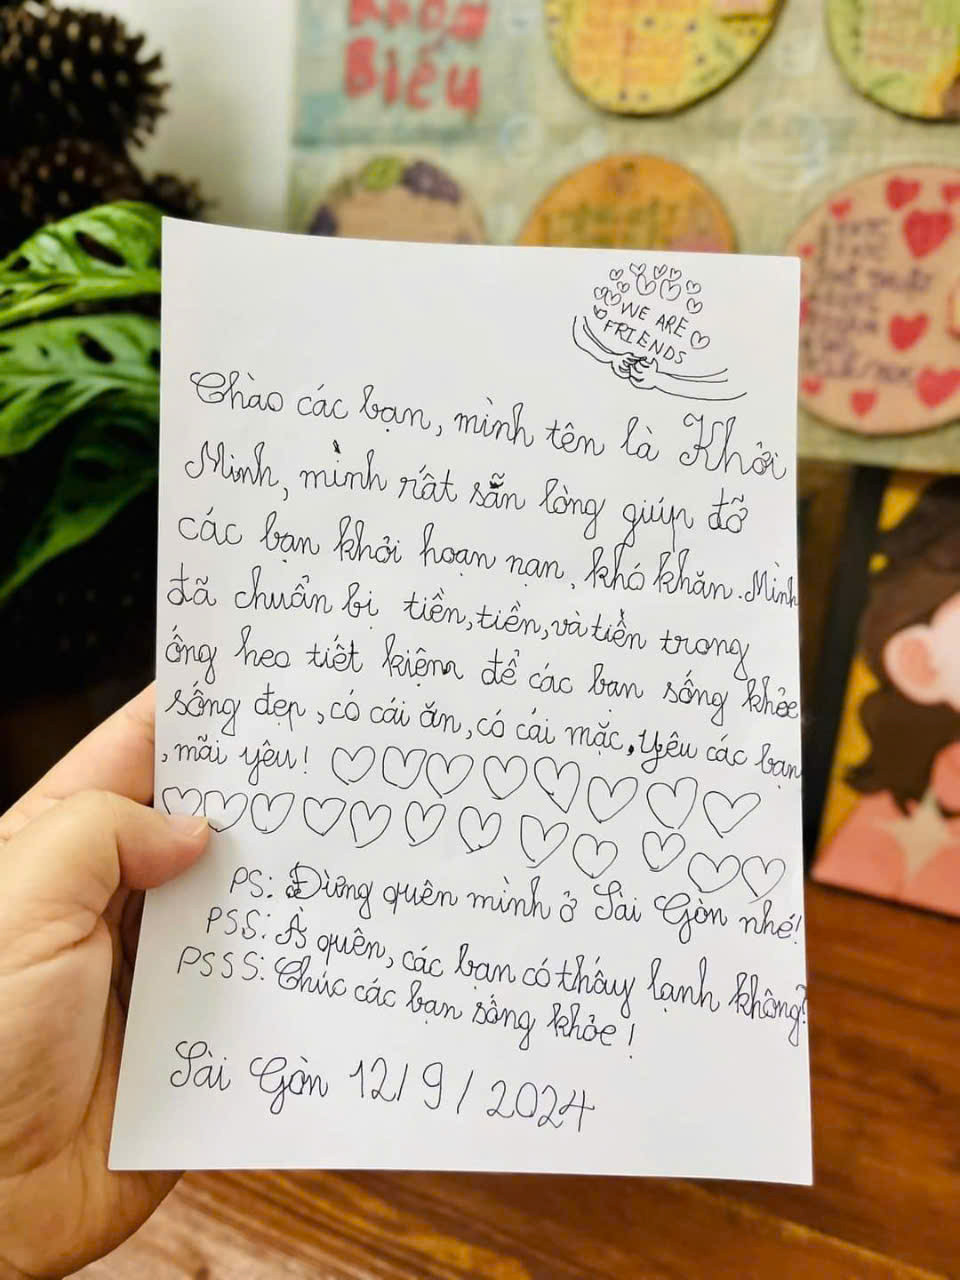 Biểu
WE ARE
FRIENDS
Chào các bạn, mình tên là Khởi
Minh, mình rất sẵn lòng giúp đỡ
các bạn khỏi hoạn nạn, khó khăn. Mình
đã chuẩn bị tiền, tiền, và tiền trong
ống heo tiết kiệm để các bạn sống khỏe
sống đẹp, có cái ăn, có cái mặc, yêu các bạn
, mãi yêu!
PS: Đừng quên mình ở Sài Gòn nhé!
PSS: À quên, các bạn có thấy lạnh không?
PSSS: Chúc các bạn sống khỏe!
Sài Gòn 12/9/2024